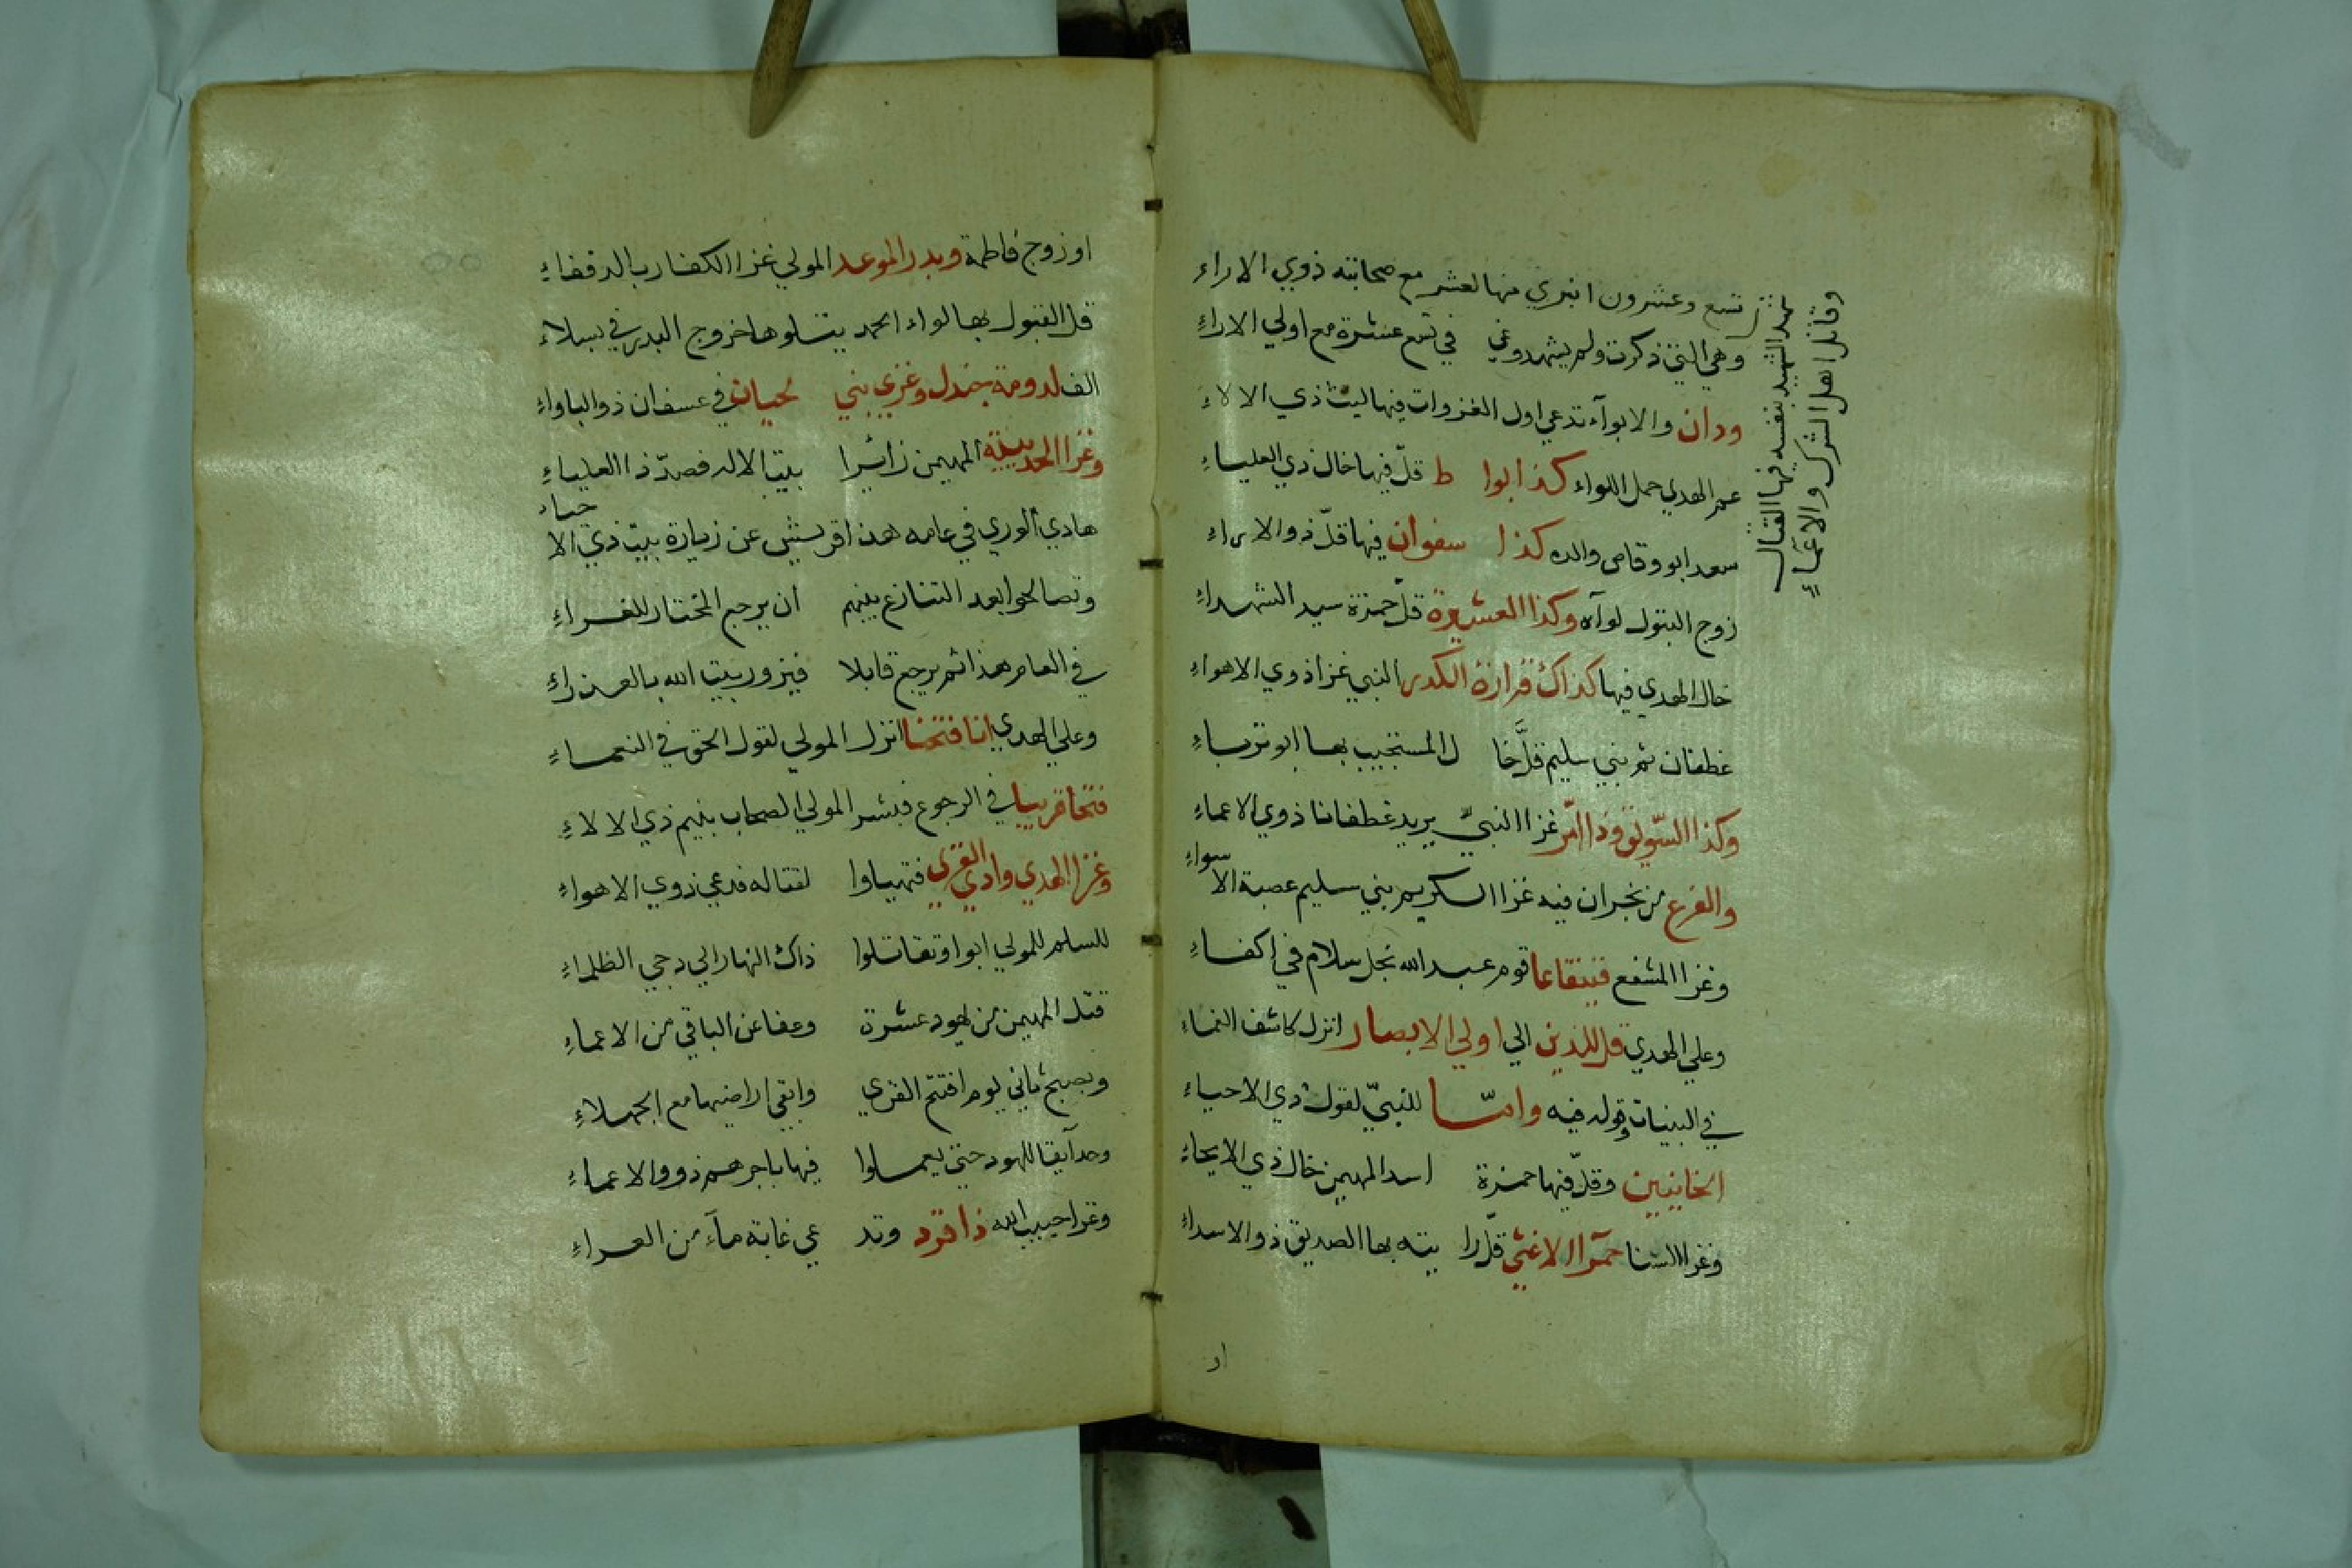 تسع وعشرون انبري منها لعشر مع صحابته ذوي الاراء
وهي التي ذكرت ولم يشهد وغي في تسع عشرة مع اولي الاراءِ
ودان والابوآء تدعي اول الغزوات فيها ليث ذي الالاءِ
عم الهدي حمل اللواء كذا بوا ط قلّ فيها خال ذي العلياءِ
سعد ابو وقاص والده كذا سفوان فيها قلّ ذو الاراءِ
زوج البتول لوآه وكذا العشيرة قلّ حمزة سيد الشهداءِ
خال الهدي فيها كذاك قرارة الكدر النبي غزا ذوي الاهواءِ
غطفان ثم بني سليم قلَّ خا ل المستجيب بها ابو تربآءِ
وكذا السّويق وذا امّر غزا النبيّ يريد غطفانا ذوي الاعماءِ
والفرع من نجران فيه غزا الكريم بني سليم عصبة الاسواءِ
وغزا المشفع قينقاعا قوم عبد الله نجل سلام في اكفاءِ
وعلي الهدي قل للذين الي اولي الابصار انزل كاشف الغماءِ
في البينات وقوله فيه وامّا للنبيّ لقول ذي الاحياءِ
الخاينين وقلّ فيها حمزة اسد المهيمن خال ذي الايحاءِ
وغزا السنا حمرآ الا قلّ را يته بها الصديق ذو الاسداءِ
شهد الشهيد بنفسه فيها القتال
وقاتلوا اهل الشرك والاعمآءِ
او
او زوج فاطمة وبدر الموعد المولي غزا الكفار بالدقعاءِ
قل القبول بها لواء الحمد يتلوها خروج البدر في سلاء
الف لدومة جندل وغزي بني لحيان في عسفان ذو الباواءِ
وغزا الحديبية المهيمن زائرا بيت الاله فصدّ ذا العلياءِ
هادي الوري في عامه هذا قريش عن زيارة بيت ذي الاحياء
وتصالحوا بعد التنازع بينهم ان يرجع المختار للغراءِ
في العام هذا ثم يرجع قابلا فيزور بيت الله بالعذراءِ
وعلي الهدي انا فتحنا انزل المولي لقول الحق في النعماءِ
فتحا قريبا في الرجوع فبشر المولي الصحاب بنيم ذي الالاءِ
وغزا الهدي وادي القري فتهياوا لقتاله فدعي ذوي الاهواءِ
للسلم للمولي ابوا وتقاتلوا ذاك النهار الي دجي الظلماءِ
قتل المهيمن من يهود عشرة وعفا عن الباقي من الاعماءِ
وبصبح ثاني يوم افتتح القري وابقي اراضيها مع الجهلاءِ
وحدآيقا لليهود حتي يعملوا فيها باجرهم ذووا الاعماءِ
وغزا حبيب الله ذا قرد وتد عي غابة مآء من العراءِ